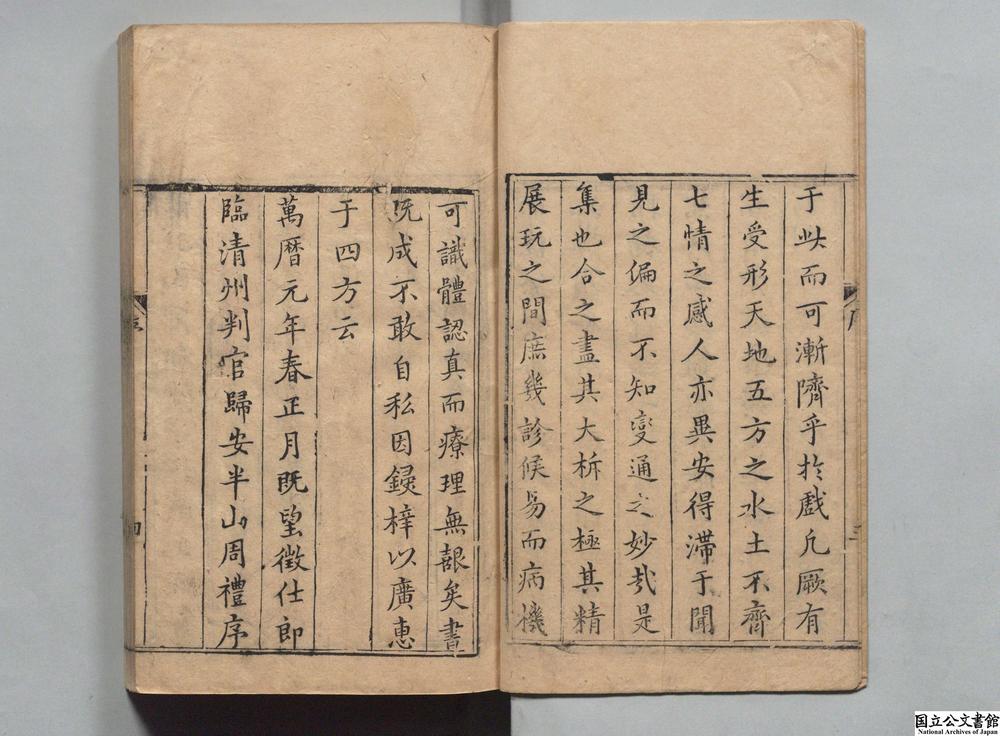 于此而可漸隮乎於戲凢厥有
生受形天地五方之水土不齊
七情之感人亦異安得滯于聞
見之偏而不知變通之妙哉是
集也合之盡其大析之極其精
展玩之間庶幾診候易而病機
可識體認真而療理無艱矣書
既成不敢自私因鋟梓以廣惠
于四方云
萬曆元年春正月既望徵仕郎
臨清州判官歸安半山周禮序
序
三
序
四
国立公文書館
National Archives of Japan